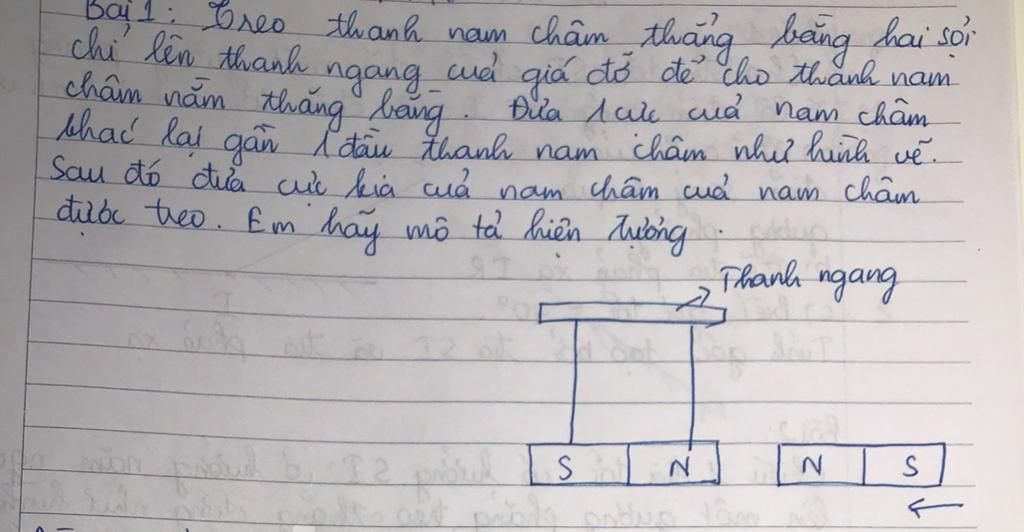 Bài 1: Treo thanh nam châm thẳng bằng hai sợi
chỉ lên thanh ngang cuả giá đỡ để cho thanh nam
châm nằm thăng bằng. Đưa 1 cực cuả nam châm
khác lại gần 1 đầu thanh nam châm như hình vẽ.
Sau đó đưa cực kia cuả nam châm cuả nam châm
được treo. Em hãy mô tả hiện tượng.
Thanh ngang
S N N S